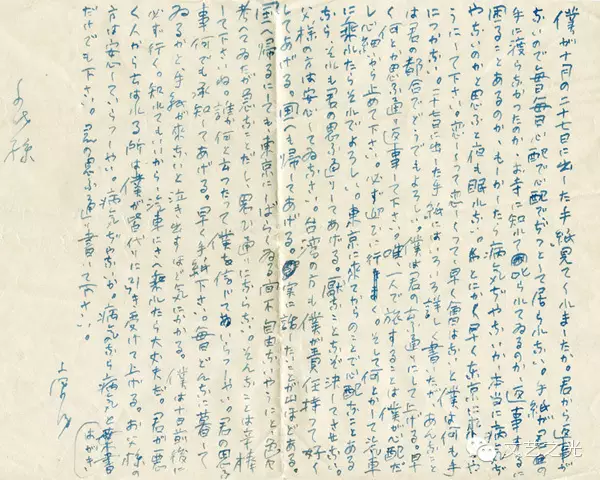 僕が十月の二十七日に出した手紙見てくれましたか。君から返事が
ないので毎日毎日心配で心配でぢつとして居られない。手紙が君の
手に渡らなかつたのか、お寺に知れて叱られてゐるのか、返事するに
困ることあるのか、もしかしたら病気ぢやないか、本当に病気ぢ
やないのかと思ふと夜も眠れない。なんとかして早く東京に来れるや
うにして下さい。恋しくつて恋しくつて早く会はないと僕は何も手
につかない。二十七日に出した手紙にはいろいろ詳しく書いたが、あんなこと
は君の都合でどうでもよろしい。僕は君の云ふ通りにして上げる。早
く何とか思ふ通り返事下さい。唯一人で旅することは僕が心配だ
し心細いから止めて下さい。必ず迎ひに行く。そして何とかして汽車
に乗れたらそれでよろしい。東京に来てからのことで心配なことある
なら、それも君の思ふ通りしてあげる。厭なことなぞ決してさせない。お
父様の方は安心してゐなさい。台湾の方も僕が責任持つて好く
してあげる。国へも帰してあげる。実に話したいことが山ほどある。
国へ帰るにしても東京にしばらくゐる間不自由ないやうにと色々
考へてゐるが、急なことだし、思ひ通りにならない。そんなことは辛棒
して下さいね。誰が何と云つたつて僕を信じてゐらつしやい。君の思ふ
事何でも承知してあげる。早く手紙下さい。毎日どんなに暮して
ゐるかと手紙が来ないと泣き出すほど気にかかる。僕は十日前後に
必ず行く。知れてもいいから、汽車にさへ乗れたら大丈夫だ。君が悪
く人から云はれる所は僕が皆代りに引き受けて上げる。お父様の
方は安心していらつしやい。病気ぢやないか。病気なら病気と葉書
はがき
だけでも下さい。君の思ふ通り書いて下さい。
様
文艺之光